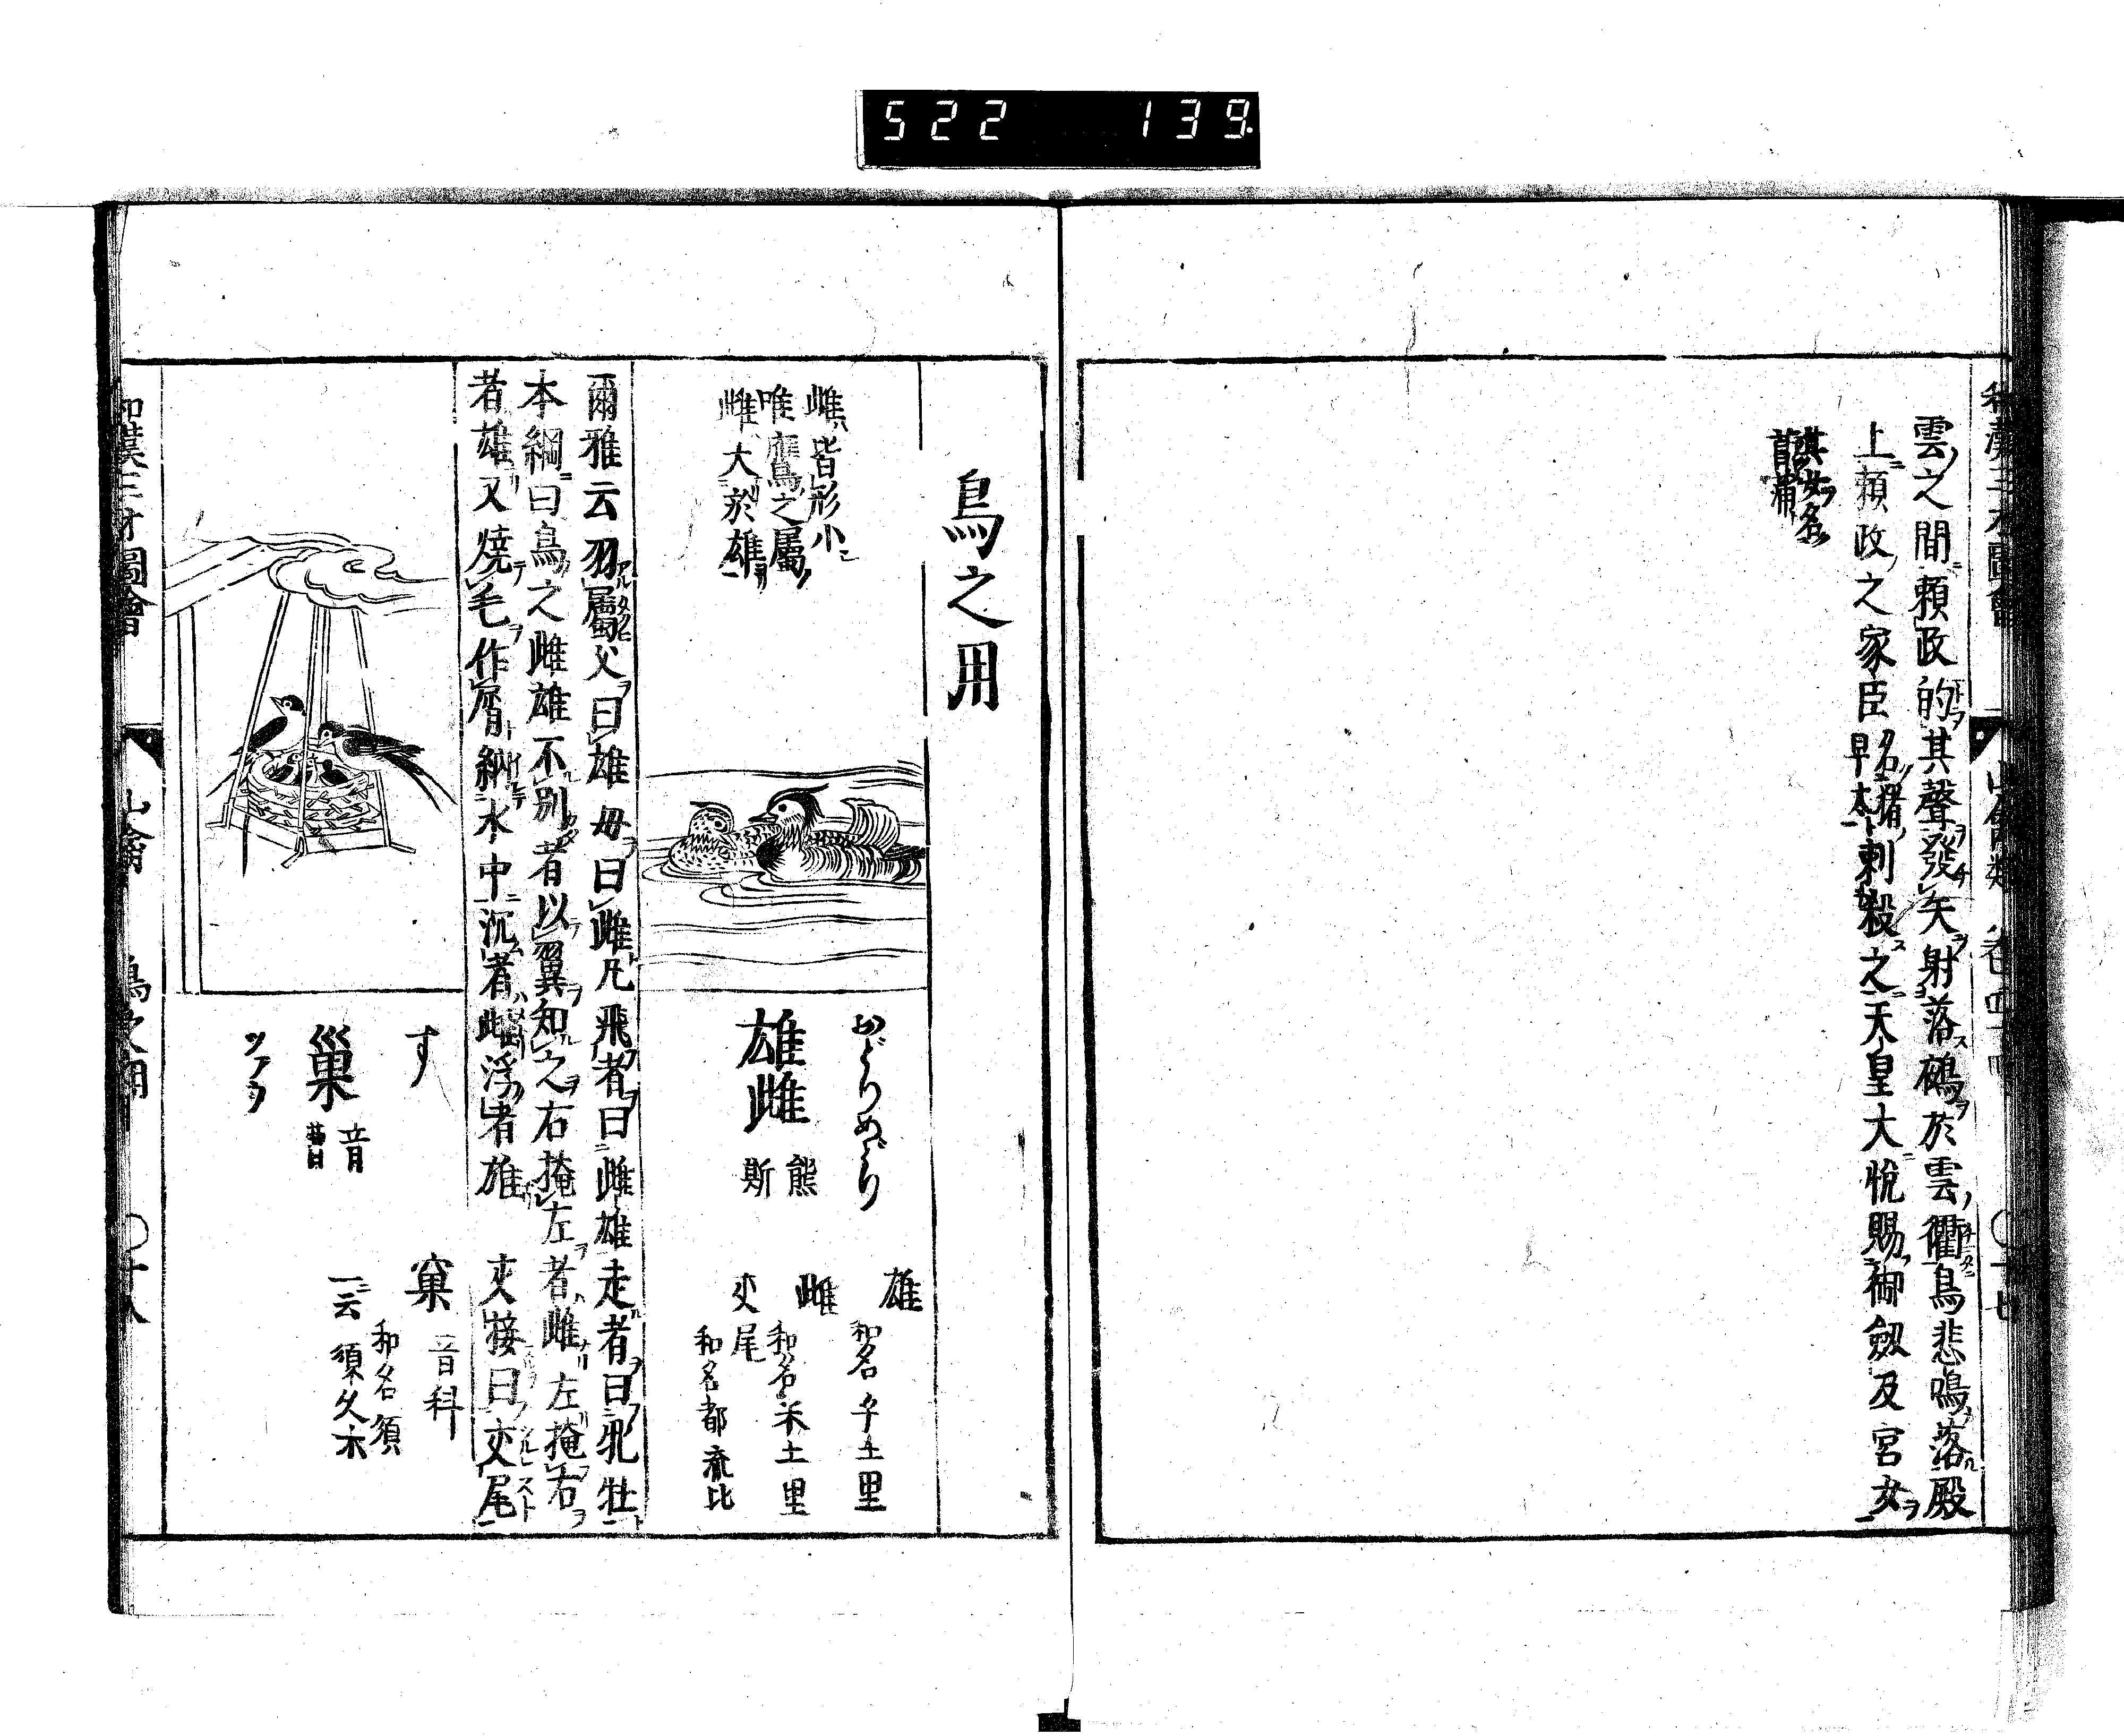 522 139
和漢三才圖會 山禽類 卷四十四 ○十七
雲之間頼政的其聲發矢射落鵺於雲衢鳥悲鳴落殿
上頼政之家臣名猪早太刺殺之天皇大悅賜御劔及宮女
其女名菖蒲
鳥之用
おどりめどり
雄雌
熊
斯
雄 和名乎土里
雌 和名米土里
尾 和名都流比
雌皆形小
唯鷹之屬
雌大於雄
爾雅云羽屬父曰雄母曰雌凡飛者曰雌雄走者曰牝牡
本綱曰鳥之雌雄不別者以翼知之右掩左者雌左掩右
者雄又燒毛作屑納水中沉者雌浮者雄 交接曰交尾
す
巢 音曹
ツアヲ
窠 音科
和名須
一云須久不
和漢三才圖會 山禽 鳥之用 ○十八